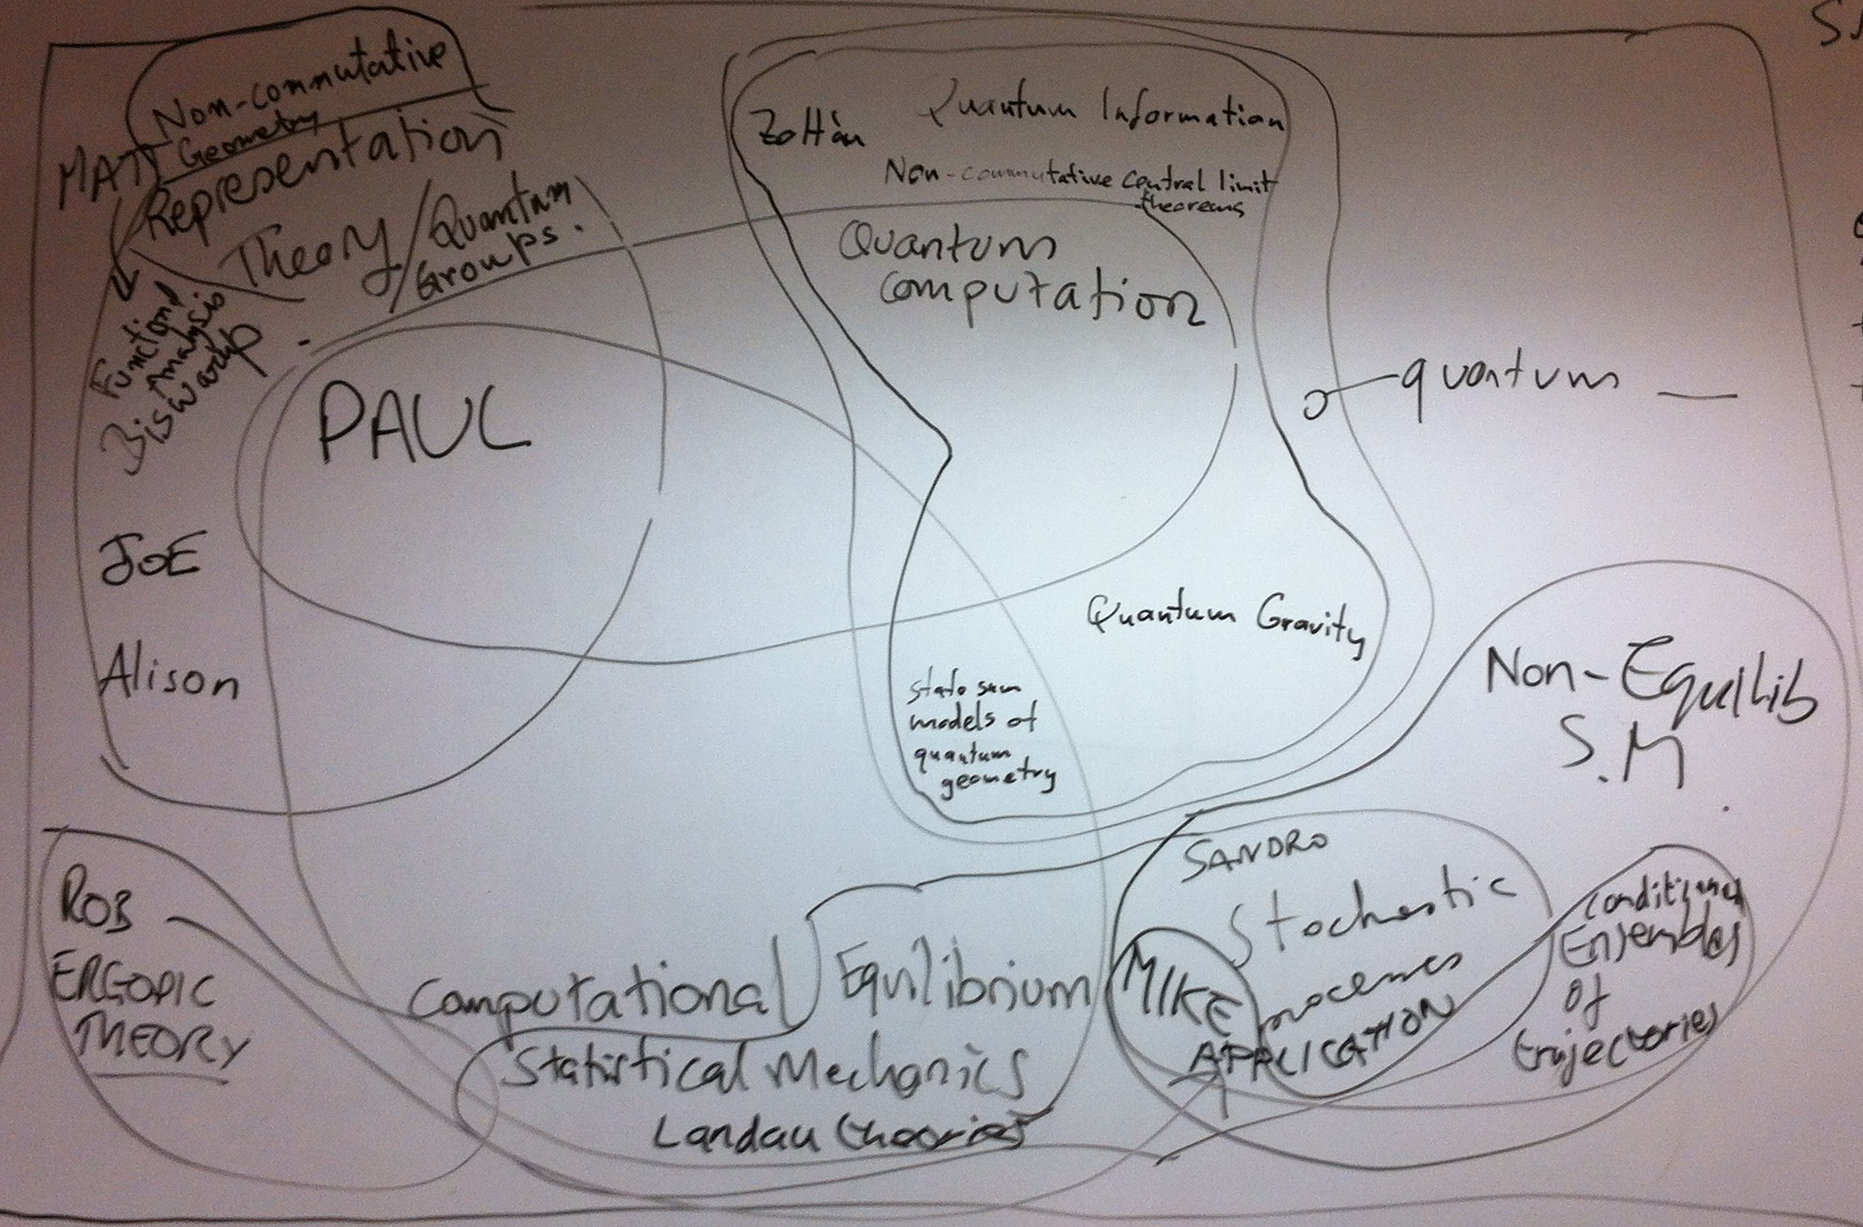 Non-commutative
Geometry
MATT
Representation
Theory/Quantum
Groups.
Functional
Analysis
Biswarup
PAUL
JOE
Alison
Zoltán
Quantum Information
Non-commutative central limit
theorems
Quantum
computation
quantum —
Quantum Gravity
state sum
models of
quantum
geometry
Non-Equilib
S.M.
ROB
ERGODIC
THEORY
Computational
Equilibrium
Statistical Mechanics
Landau theories
SANDRO
Stochastic
processes
MIKE
APPLICATION
Conditioned
Ensembles
of
trajectories